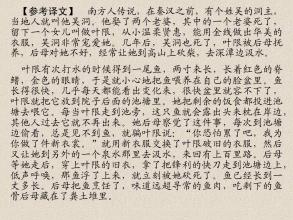 【参考译文】 南方人传说，在秦汉之前，有个姓吴的洞主，
当地人就叫他吴洞。他娶了两个老婆，其中一个老婆死了，
留下一个女儿叫做叶限，从小温柔贤惠，能用金线做出华美的
衣服，吴洞非常宠爱她。几年后，吴洞也死了，叶限被后母抚
养，后母对她不好，经常让她到高山上砍柴、去深潭边汲水。
叶限有次打水的时候得到一尾鱼，两寸来长，长着红色的脊
鳍，金色的眼睛，于是就小心地把鱼喂养在自己的脸盆里。鱼
长得很快，几乎每天都能看出变化来，很快盆里就容不下了，
叶限就把它放到院子后面的池塘里，她把剩余的饭食都投进池
塘去喂它。每当叶限走到池旁，这只鱼就会露出头来枕在岸边，
其他人过去它就不再出来。她后母感觉了这件事，每次到池塘
边偷看，总是见不到鱼，就骗叶限说：“你恐怕累了吧，我为
你做了件新衣裳。”就用新衣服交换了叶限破旧的衣服，然后
又让她到另外的一个泉水那里去汲水，来回有上百里路。后母
等她走后，穿上叶限的旧衣，拿了把锋利的快刀走到池塘边上，
低声呼唤，那鱼浮了上来，就立刻被她砍死了。鱼已经长到一
丈多长。后母把鱼烹饪了，味道远超寻常的鱼肉，吃剩下的鱼
骨后母藏在了粪土堆里。